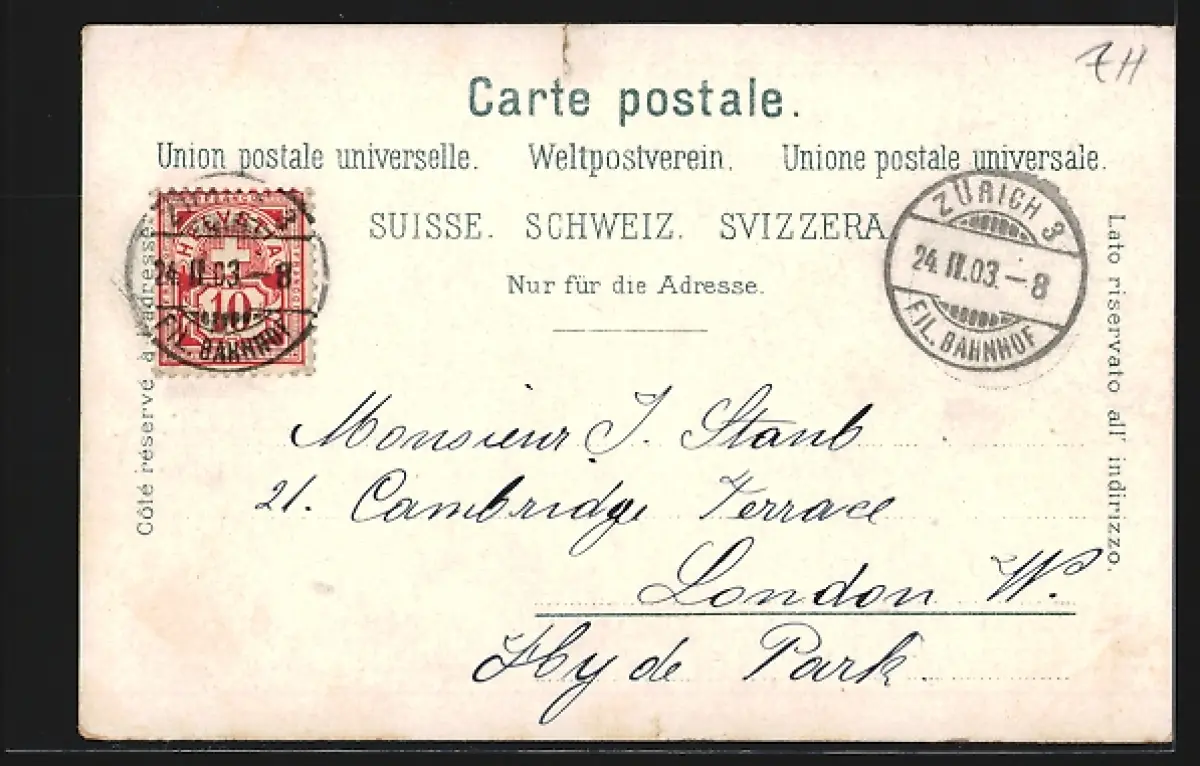 ZH
Carte postale.
Union postale universelle. Weltpostverein. Unione postale universale.
SUISSE. SCHWEIZ. SVIZZERA.
Nur für die Adresse.
Côté réservé à l'adresse.
Lato riservato all' indirizzo.
FRANCO
HELVETIA
10
24.II.03.–8
FIL. BAHNHOF
ZÜRICH 3
24.II.03.–8
FIL. BAHNHOF
Monsieur J. Staub
21. Cambridge Terrace
London W.
Hyde Park.